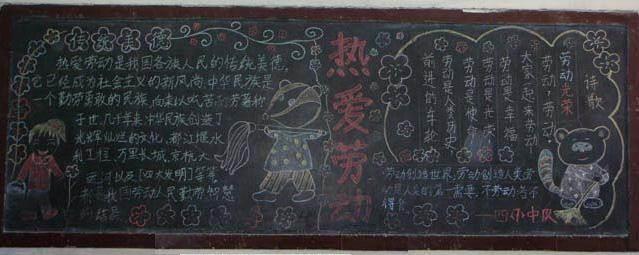 热爱劳动是我国各族人民的传统美德,
它已经成为社会主义的新风尚。中华民族是
一个勤劳勇敢的民族,向来以吃苦耐劳著称
于世,几千年来中华民族创造了
光辉灿烂的文化,都江堰水
利工程,万里长城,京杭大
运河以及“四大发明”等等,
都是我国劳动人民勤劳智慧
的结晶
热爱劳动
诗歌
劳动光荣
劳动,劳动,
大家一起来劳动
劳动是幸福
劳动是光荣
劳动是使命
劳动是人类历史
前进的车轮
劳动创造世界,劳动创造人类,劳
动是人类的第一需要,不劳动者不
得食
中队